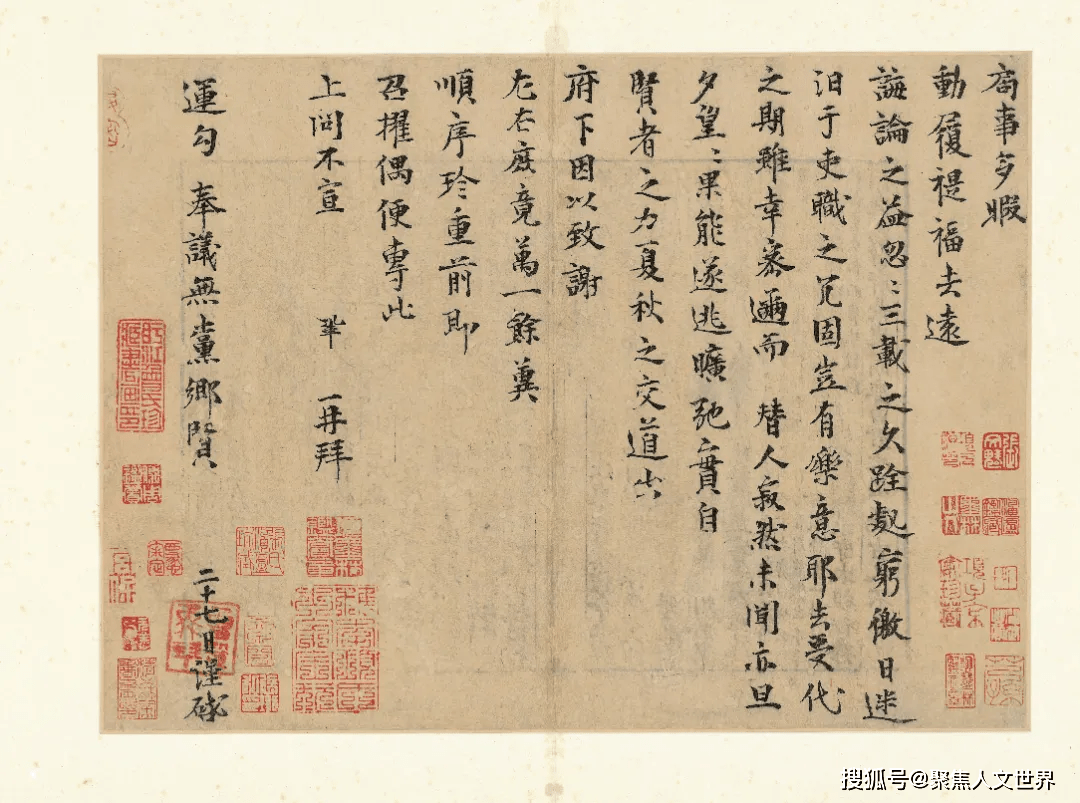 局事多暇
動履禔福去遠
誨論之益忽忽三載之久跧處窮徼日迷
汨于吏職之冗固豈有樂意耶去受代
之期雖幸密邇而替人寂然未聞亦旦
夕望望果能遂逃曠弛實自
賢者之力夏秋之交道出
府下因以致謝
左右庶竟萬一餘冀
順序珍重前即
召擢偶便專此
上問不宣 鞏 再拜
運勾 奉議無黨鄉賢
二十七日謹啟
搜狐号@聚焦人文世界